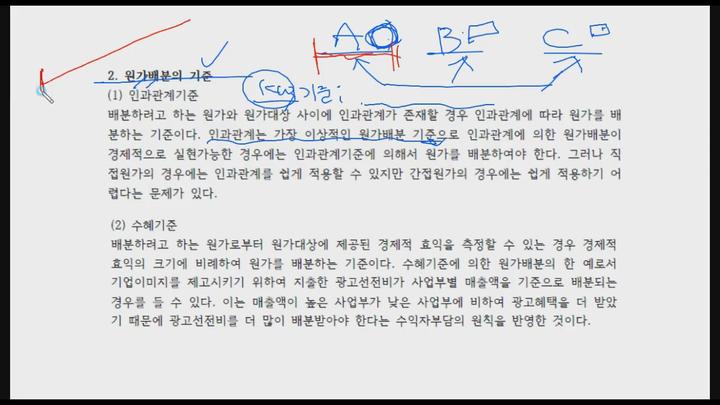 A B C
2. 원가배분의 기준
(1) 인과관계기준
배분하려고 하는 원가와 원가대상 사이에 인과관계가 존재할 경우 인과관계에 따라 원가를 배
분하는 기준이다. 인과관계는 가장 이상적인 원가배분 기준으로 인과관계에 의한 원가배분이
경제적으로 실현가능한 경우에는 인과관계기준에 의해서 원가를 배분하여야 한다. 그러나 직
접원가의 경우에는 인과관계를 쉽게 적용할 수 있지만 간접원가의 경우에는 쉽게 적용하기 어
렵다는 문제가 있다.
(2) 수혜기준
배분하려고 하는 원가로부터 원가대상에 제공된 경제적 효익을 측정할 수 있는 경우 경제적
효익의 크기에 비례하여 원가를 배분하는 기준이다. 수혜기준에 의한 원가배분의 한 예로서
기업이미지를 제고시키기 위하여 지출한 광고선전비가 사업부별 매출액을 기준으로 배분되는
경우를 들 수 있다. 이는 매출액이 높은 사업부가 낮은 사업부에 비하여 광고혜택을 더 받았
기 때문에 광고선전비를 더 많이 배분받아야 한다는 수익자부담의 원칙을 반영한 것이다.